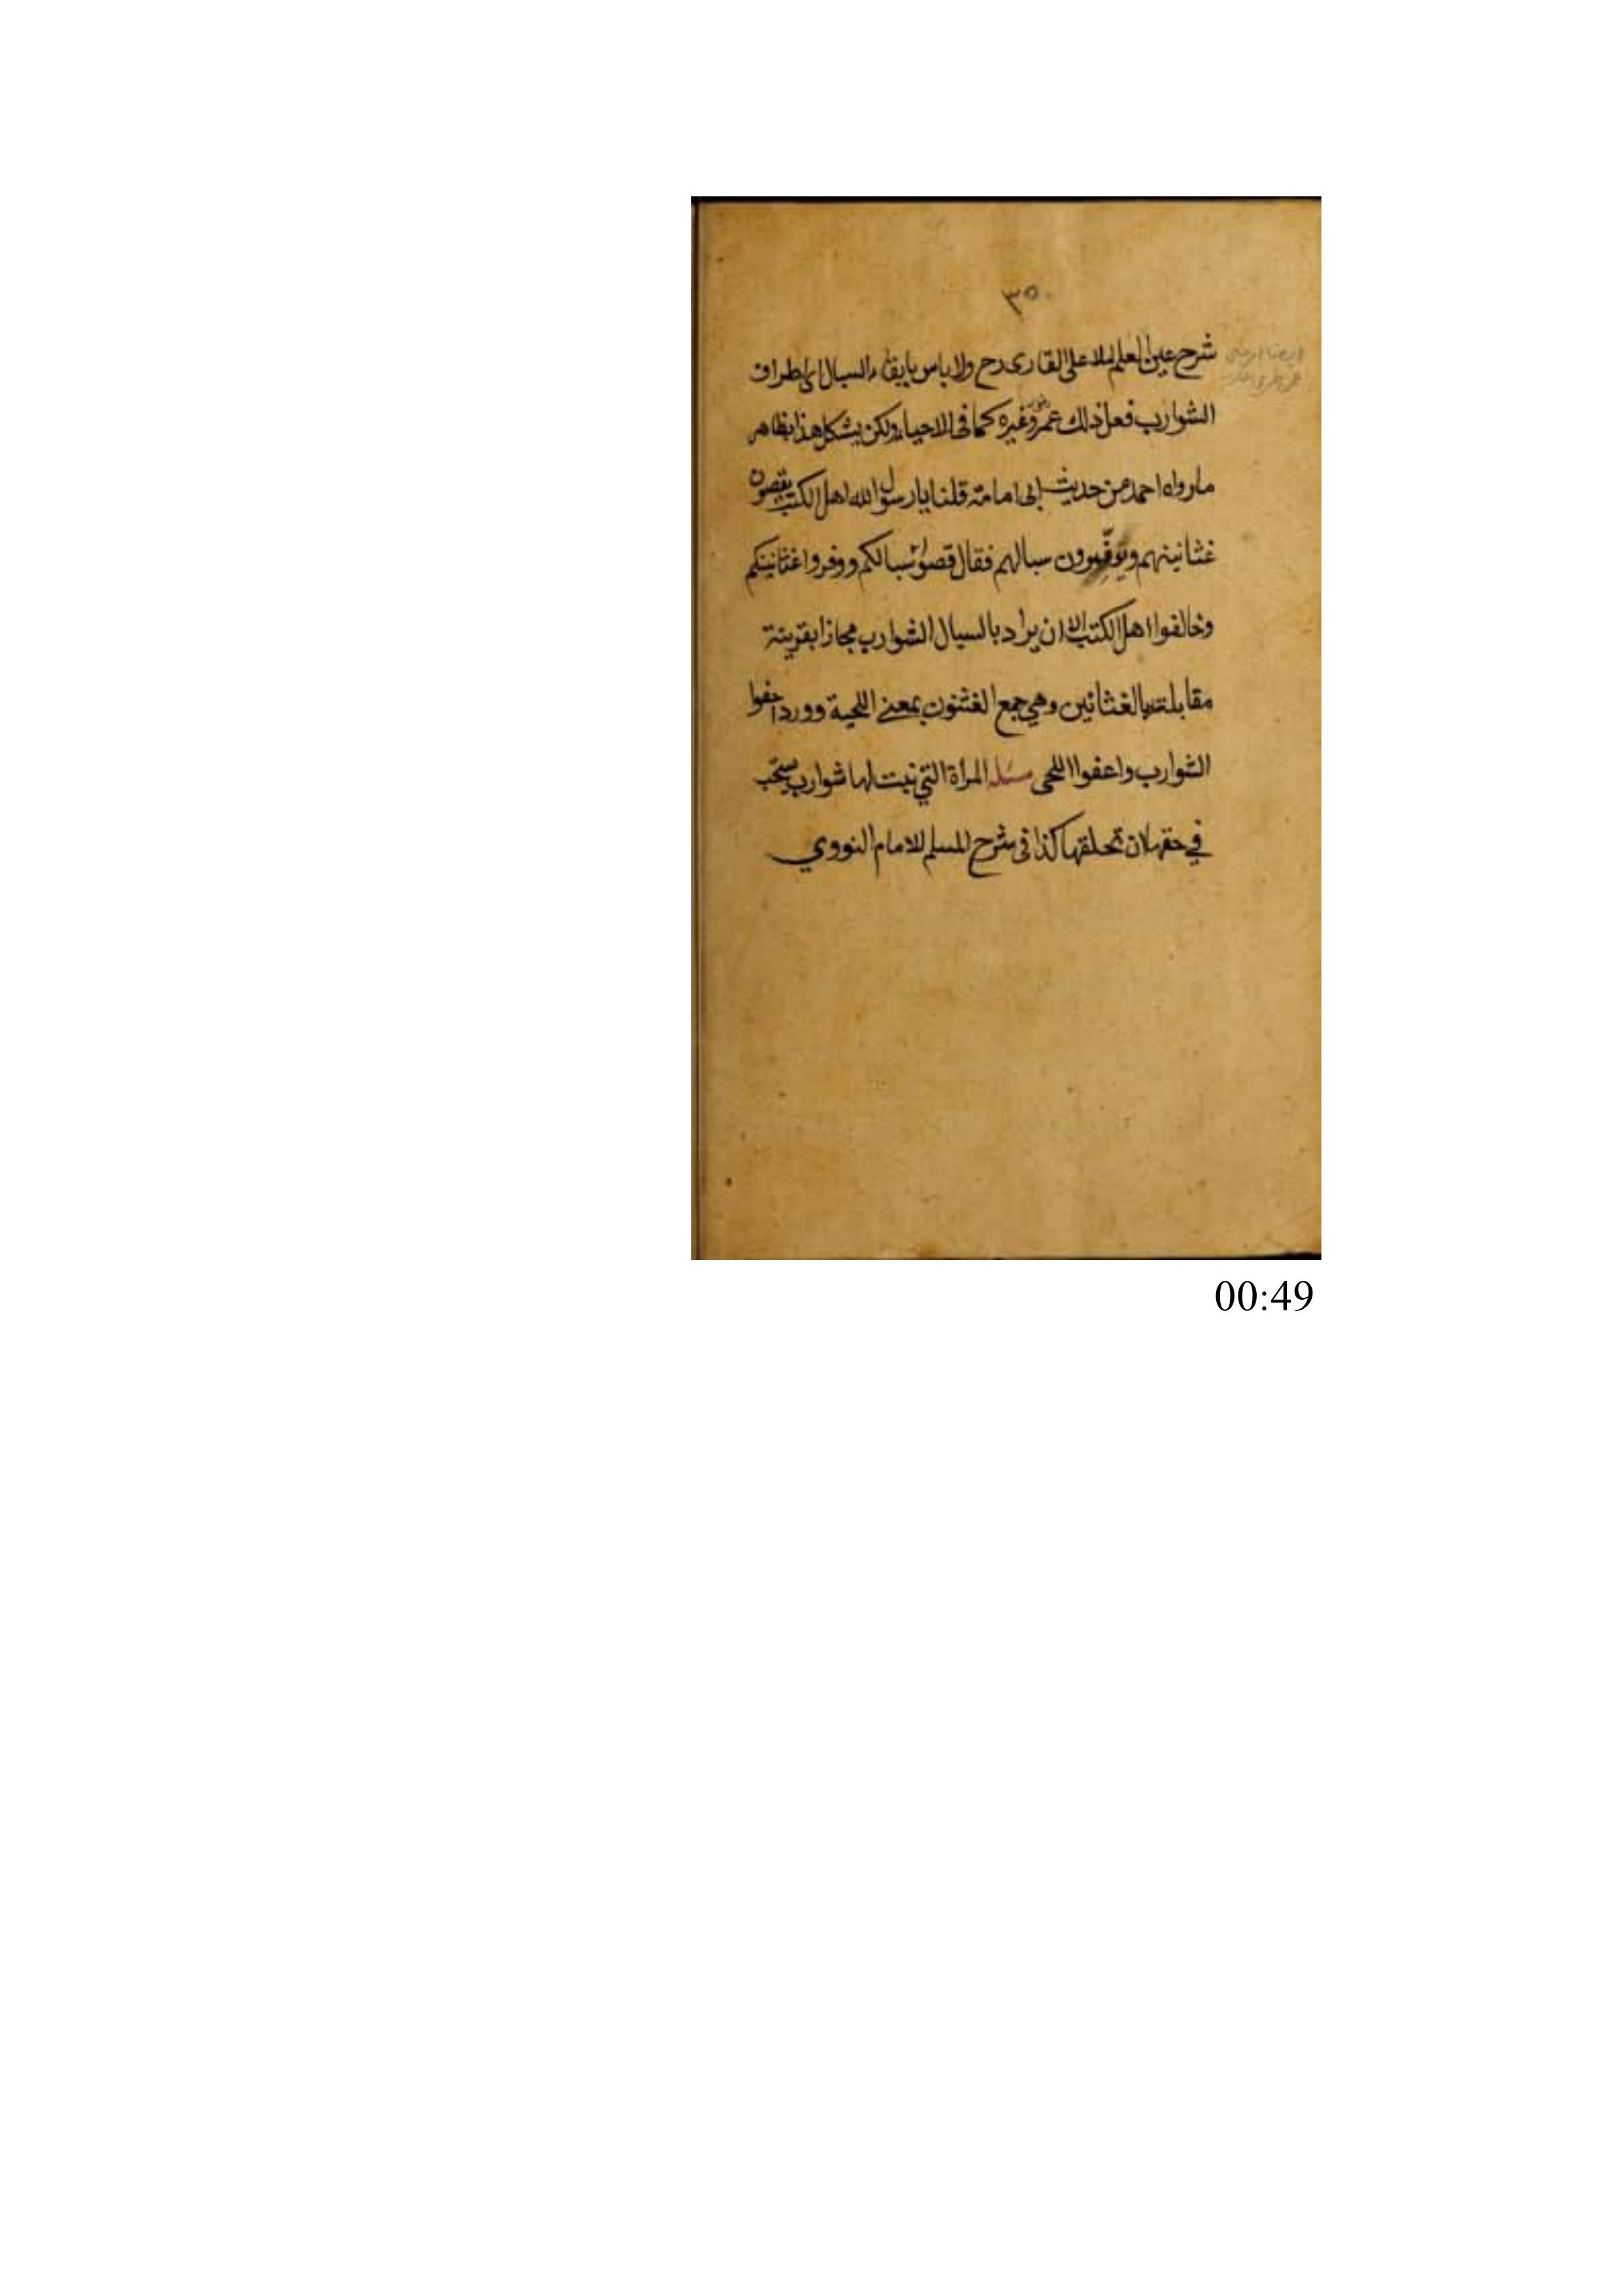 ٣٥
شرح عين العلم لملا على القارى رح ولا باس بابقاء السبال اى اطراف
الشوارب فعل ذلك عمر وغيره كما فى الاحياء ولكن يشكل هذا بظاهر
ما رواه احمد من حديث ابى امامة قلنا يا رسول الله اهل الكتب يقصون
غثانينهم ويوفرون سبالهم فقال قصوا سبالكم ووفروا غثانينكم
وخالفوا اهل الكتب الا ان يراد بالسبال الشوارب مجازا بقرينة
مقابلته بالغثانين وهي جمع الغثنون بمعنى اللحية وورد احفوا
الشوارب واعفوا اللحى مسئله المراة التي نبت لها شوارب يستحب
في حقها ان تحلقها كذا فى شرح المسلم للامام النووي
00:49